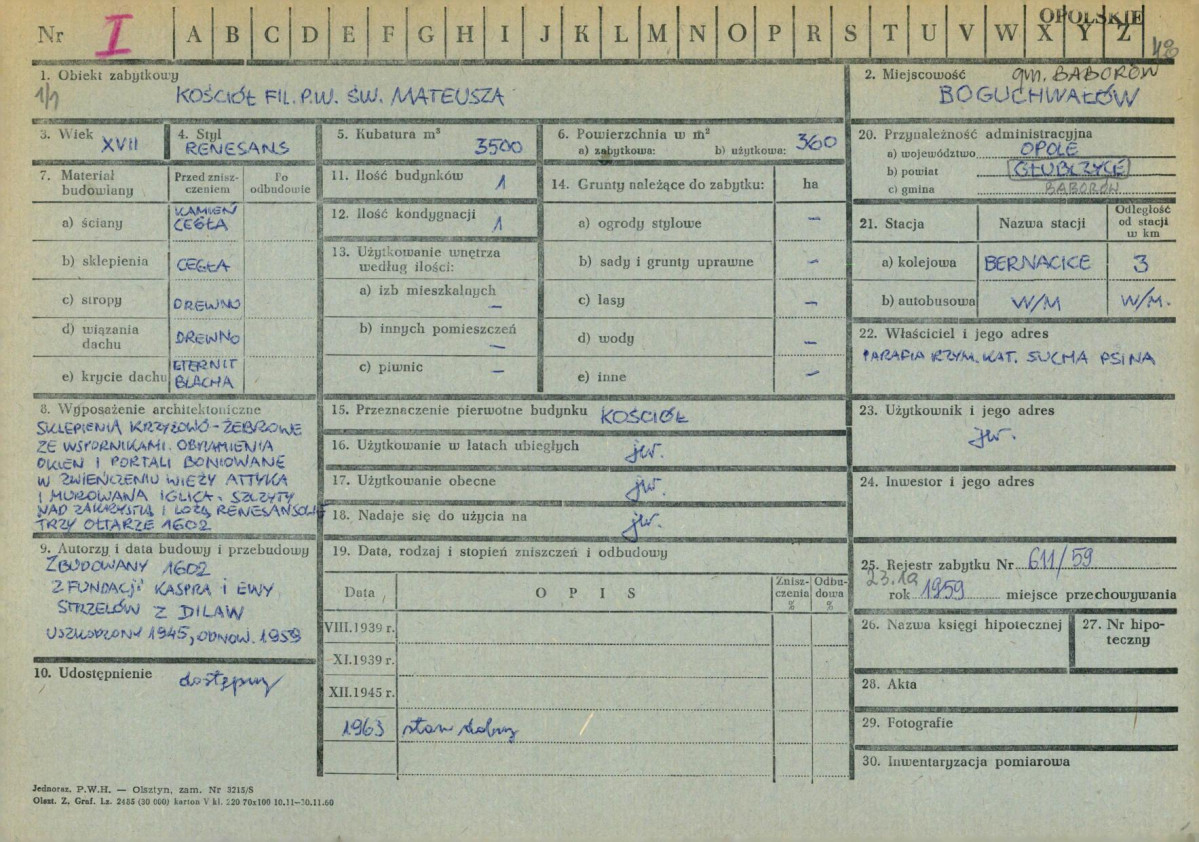 OPOLSKIE
Nr I A B C D E F G H I J K L M N O P R S T U V W X Y Z
48
1. Obiekt zabytkowy
1/1
KOŚCIÓŁ FIL. P.W. ŚW. MATEUSZA
2. Miejscowość gm. BABORÓW
BOGUCHWAŁÓW
3. Wiek
XVII
4. Styl
RENESANS
5. Kubatura m³
3500
6. Powierzchnia w m²
a) zabytkowa: b) użytkowa: 360
7. Materiał budowiany
Przed zniszczeniem
Po odbudowie
a) ściany KAMIEŃ CEGŁA
b) sklepienia CEGŁA
c) stropy DREWNO
d) wiązania dachu DREWNO
e) krycie dachu ETERNIT BLACHA
8. Wyposażenie architektoniczne
SKLEPIENIA KRZYŻOWO-ŻEBROWE
ZE WSPORNIKAMI. OBRAMIENIA
OKIEN I PORTALI BONIOWANE
W ZWIEŃCZENIU WIEŻY ATTYKA
I MUROWANA IGLICA. SZCZYTY
NAD ZAKRYSTIĄ I LOŻĄ RENESANSOWE
TRZY OŁTARZE 1602
9. Autorzy i data budowy i przebudowy
ZBUDOWANY 1602
Z FUNDACJI KASPRA I EWY
STRZELÓW Z DILAW
USZKODZONY 1945, ODNOW. 1959
10. Udostępnienie dostępny
11. Ilość budynków 1
12. Ilość kondygnacji 1
13. Użytkowanie wnętrza
według ilości:
a) izb mieszkalnych –
b) innych pomieszczeń –
c) piwnic –
14. Grunty należące do zabytku: ha
a) ogrody stylowe –
b) sady i grunty uprawne –
c) lasy –
d) wody –
e) inne –
15. Przeznaczenie pierwotne budynku KOŚCIÓŁ
16. Użytkowanie w latach ubiegłych jw.
17. Użytkowanie obecne jw.
18. Nadaje się do użycia na jw.
19. Data, rodzaj i stopień zniszczeń i odbudowy
Data
O P I S
Zniszczenia %
Odbudowa %
VIII.1939 r.
XI.1939 r.
XII.1945 r.
1963 stan dobry
20. Przynależność administracyjna
a) województwo OPOLE
b) powiat GŁUBCZYCE
c) gmina BABORÓW
21. Stacja
Nazwa stacji
Odległość od stacji w km
a) kolejowa BERNACICE 3
b) autobusowa W/M W/M.
22. Właściciel i jego adres
PARAFIA RZYM. KAT. SUCHA PSINA
23. Użytkownik i jego adres
jw.
24. Inwestor i jego adres
25. Rejestr zabytku Nr 611/59
23.10
rok 1959 miejsce przechowywania
26. Nazwa księgi hipotecznej
27. Nr hipoteczny
28. Akta
29. Fotografie
30. Inwentaryzacja pomiarowa
Jednoraz. P.W.H. — Olsztyn, zam. Nr 3215/S
Olszt. Z. Graf. Lz. 2485 (30 000) karton V kl. 220 70x100 10.11—30.11.60